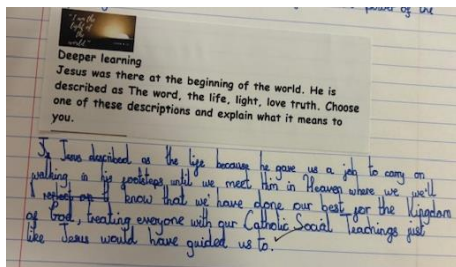 power of the
"I am the
light of
the
world"
Deeper learning
Jesus was there at the beginning of the world. He is
described as The word, the life, light, love truth. Choose
one of these descriptions and explain what it means to
you.
Jesus described as the life because he gave us a job to carry on
walking in his footsteps until we meet Him in Heaven where we we'll
know that we have done our best for the Kingdom
of God, treating everyone with our Catholic Social Teachings just
like Jesus would have guided us to.